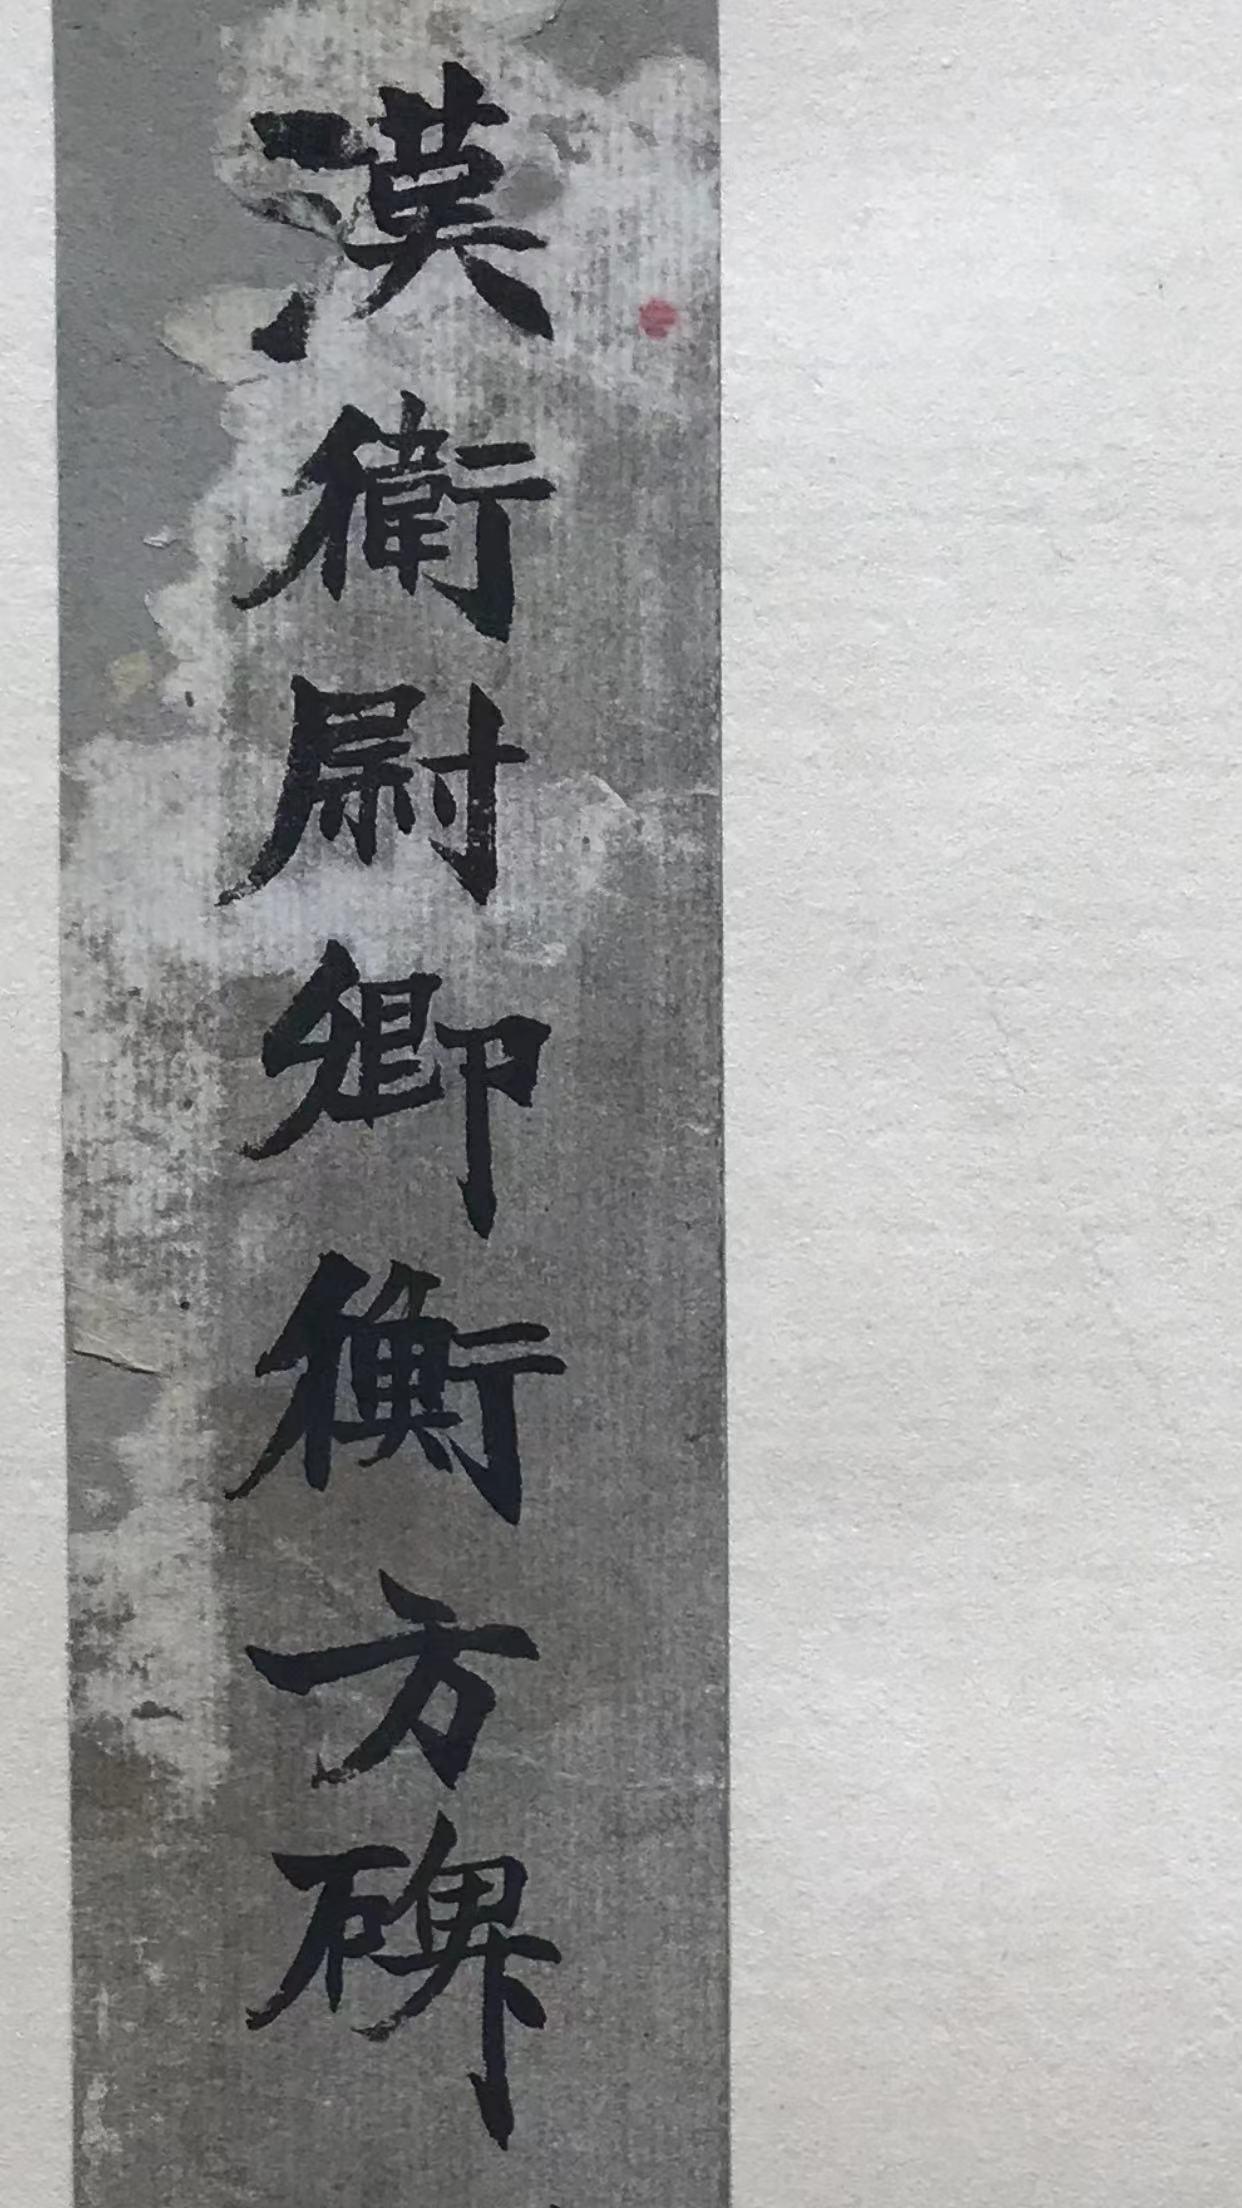 漢衛尉卿衡方碑